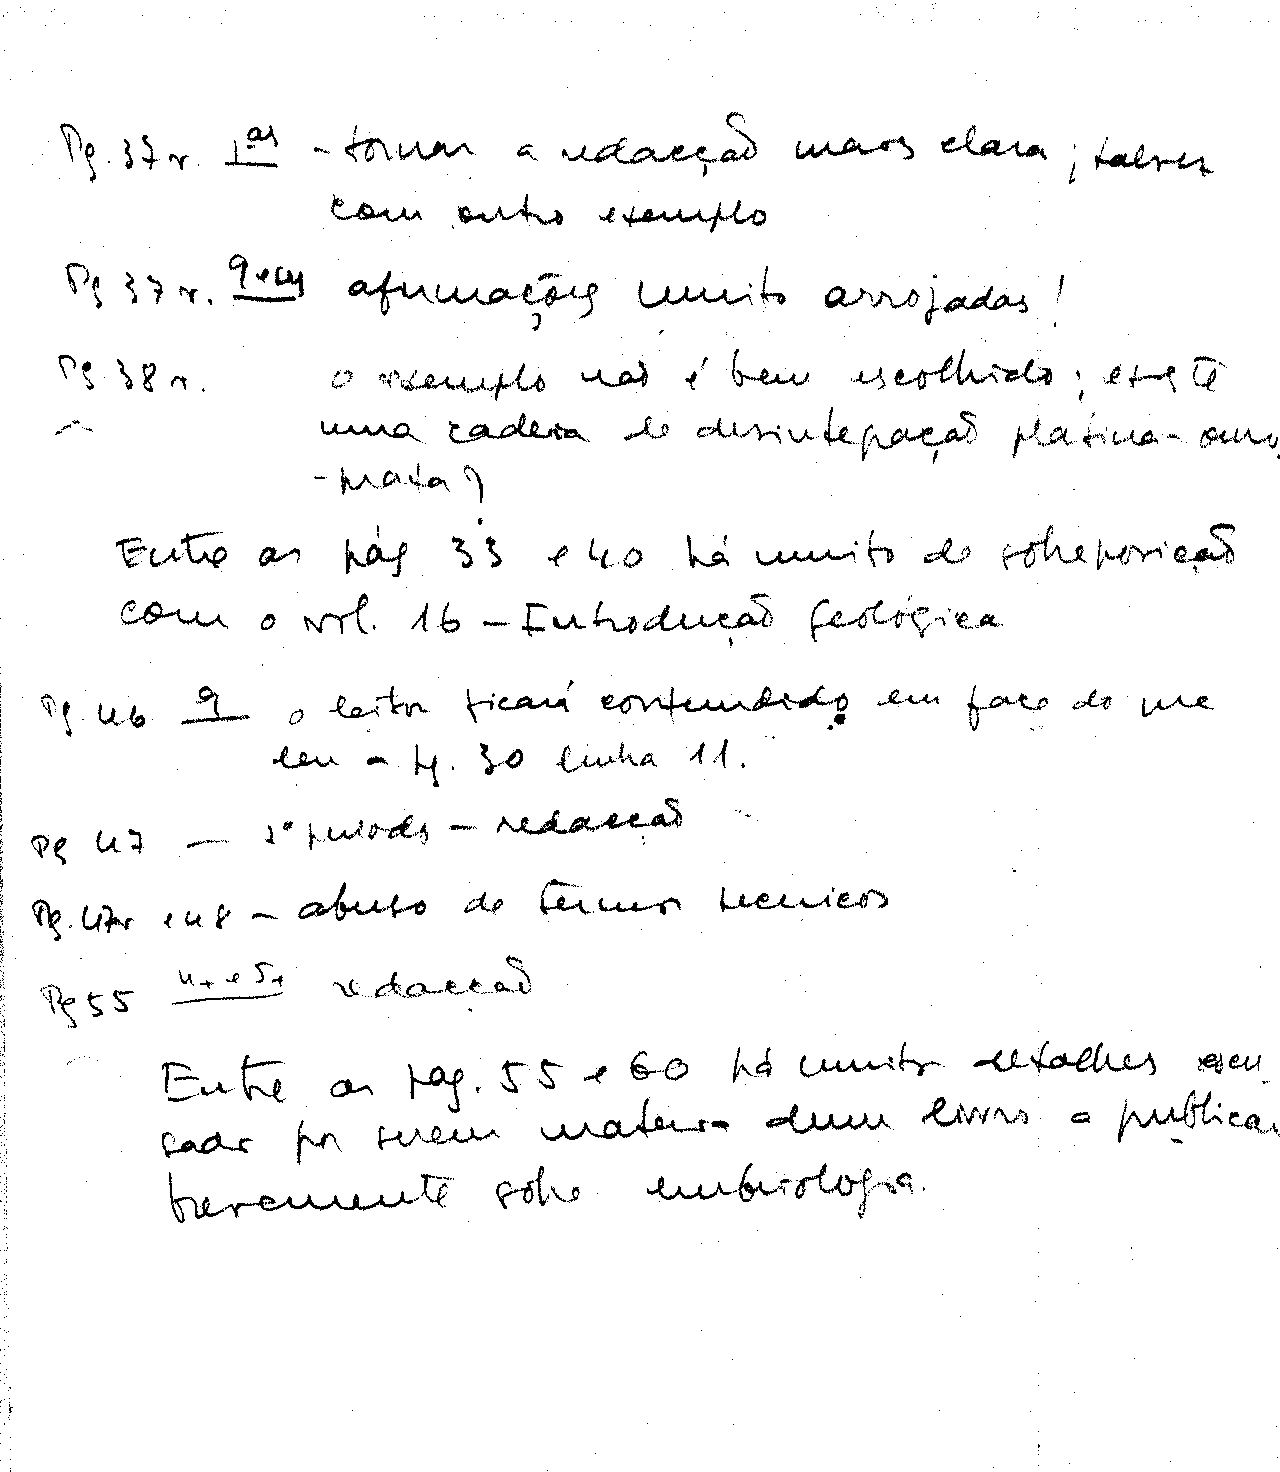 Pg. 37 v. 1as - tornar a redacção mais clara; talvez
com outro exemplo
Pg 37 v. afirmações muito arrojadas!
Pg 38 v. o exemplo não é bem escolhido; existe
uma cadeia de desintegração platina-ouro
-prata?
Entre as pág 33 e 40 há muito de sobreposição
com o vol. 16 - Introdução geológica
Pg. 46 9 o leitor ficará confundido em face do que
leu a pg. 30 linha 11.
Pg 47 — 2º período - redacção
Pg. 47v e 48 - abuso de termos tecnicos
Pg 55 4+ e 5+ redacção
Entre as pag. 55 e 60 há muitos detalhes escu-
sados por serem materia dum livro a publicar
brevemente sobre embriologia.